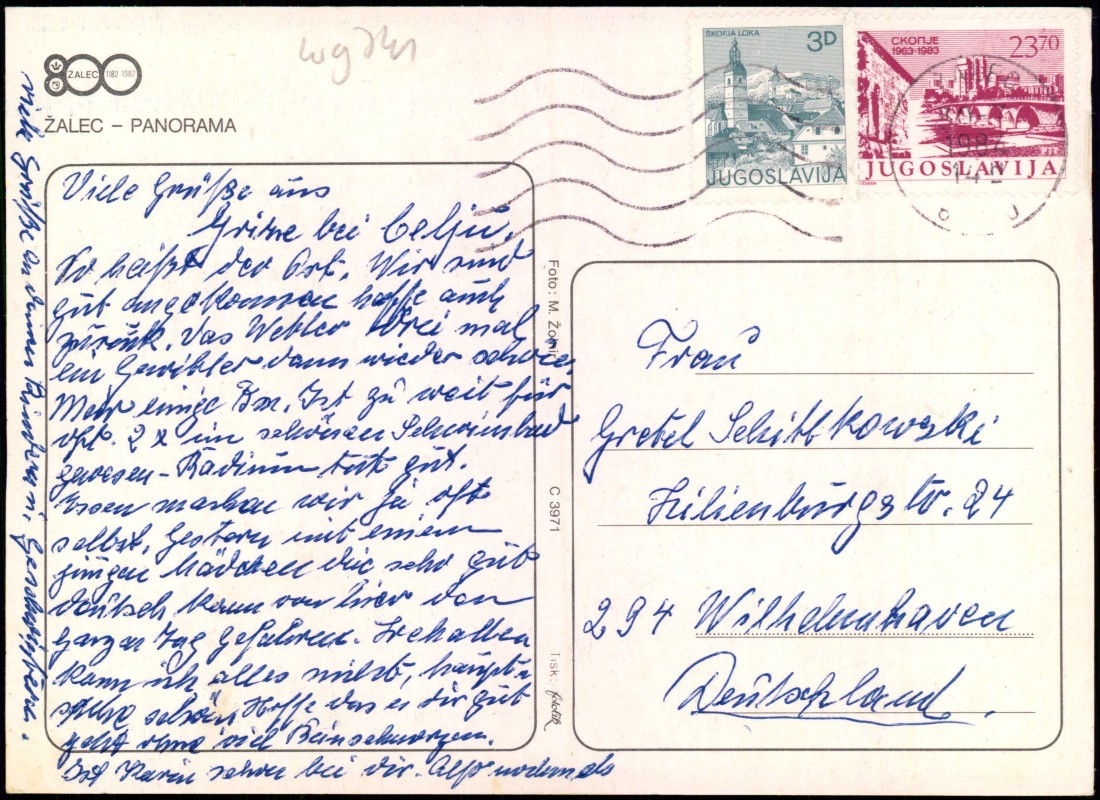 800
ŽALEC
1182 1982
ŽALEC – PANORAMA
ŠKOFJA LOKA
3D
JUGOSLAVIJA
СКОПЈЕ
1963-1983
23 70
JUGOSLAVIJA
Viele Grüße aus
Grize bei Celju.
So heißt der Ort. Wir sind
gut angekommen hoffe auch
zurück. Das Wetter drei mal
ein Gewitter dann wieder schön.
Meer einige Km. Ist zu weit für
oft. 2 x im schönen Schwimbad
gewesen – Radium tut gut.
Essen machen wir ja oft
selbst. Gestern mit einem
jungen Mädchen die sehr gut
deutsch kann von hier den
ganzen Tag gefahren. Behalten
kann ich alles nicht, haupt-
sache schön Hoffe das es dir gut
geht ohne viel Beinschmerzen.
Ist Karin schon bei dir. Also nochmals
viele Grüße an deinen Kindern
Foto: M.
C 3971
Tisk:
Frau
Gretel Schittkowski
Lilienburgstr. 24
294 Wilhelmshaven
Deutschland.